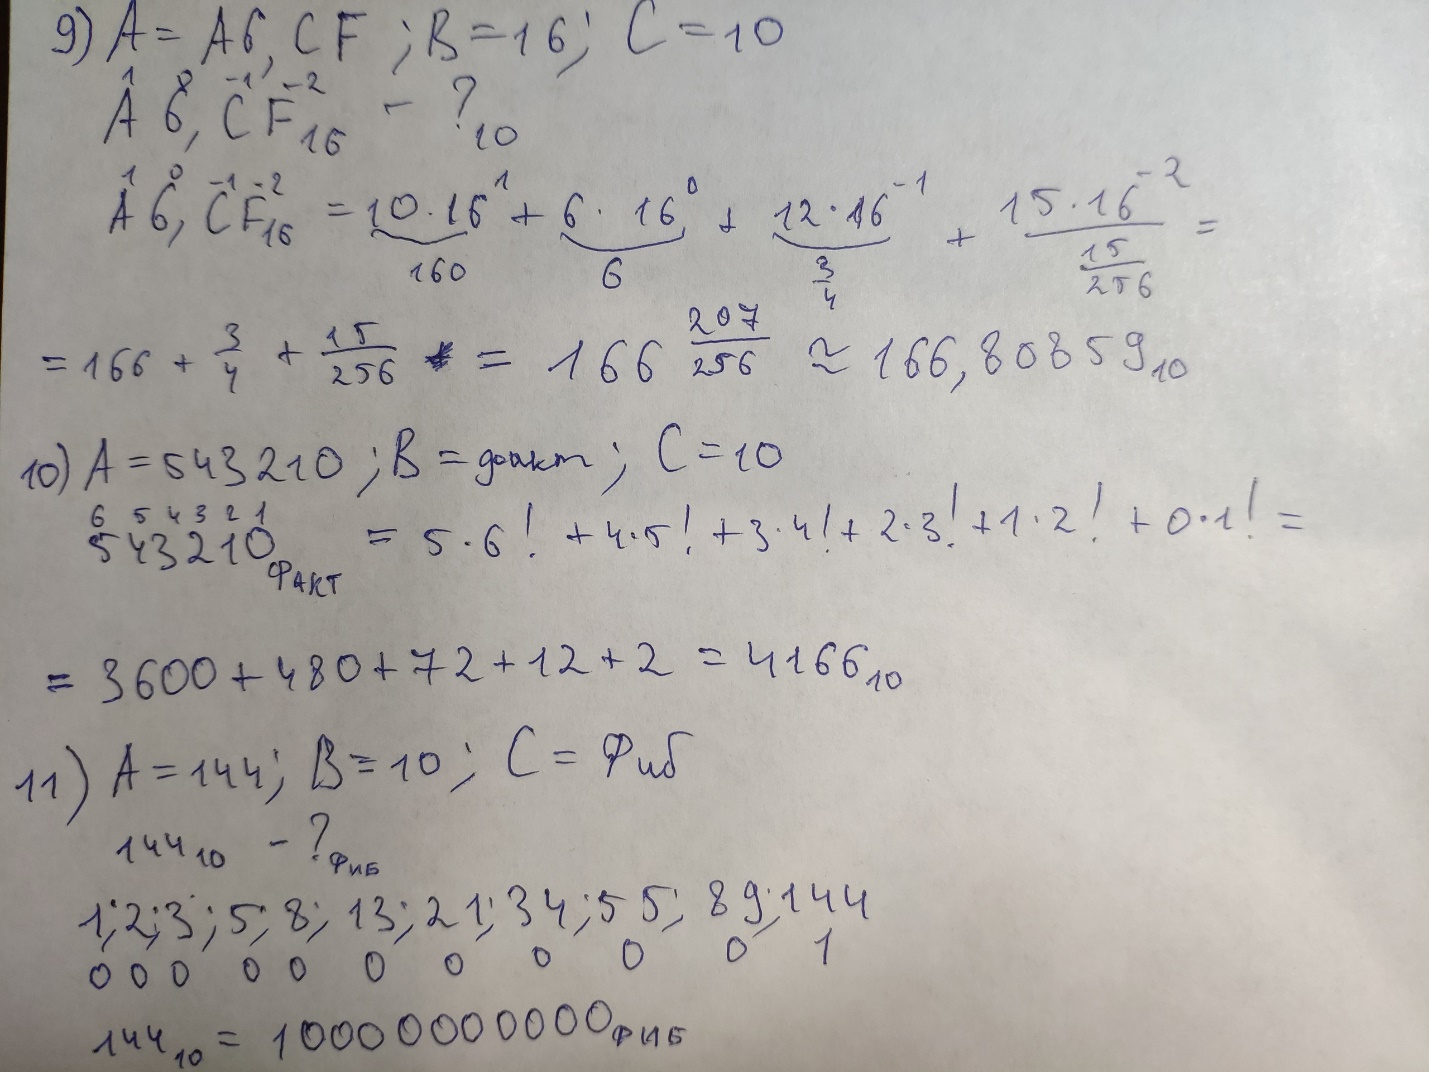 9) A = A6,CF ; B = 16; C = 10
1 0 -1 -2
A6,CF₁₆ - ?₁₀
1 0 -1 -2
A6,CF₁₆ = 10·16¹ + 6·16⁰ + 12·16⁻¹ + 15·16⁻² =
160 6 3/4 15/256
= 166 + 3/4 + 15/256 = 166 207/256 ≈ 166,80859₁₀
10) A = 543210 ; B = факт ; C = 10
6 5 4 3 2 1
543210ФАКТ = 5·6! + 4·5! + 3·4! + 2·3! + 1·2! + 0·1! =
= 3600 + 480 + 72 + 12 + 2 = 4166₁₀
11) A = 144; B = 10 ; C = Фиб
144₁₀ - ?ФИБ
1; 2; 3; 5; 8; 13; 21; 34; 55; 89; 144
0 0 0 0 0 0 0 0 0 0 1
144₁₀ = 10000000000ФИБ